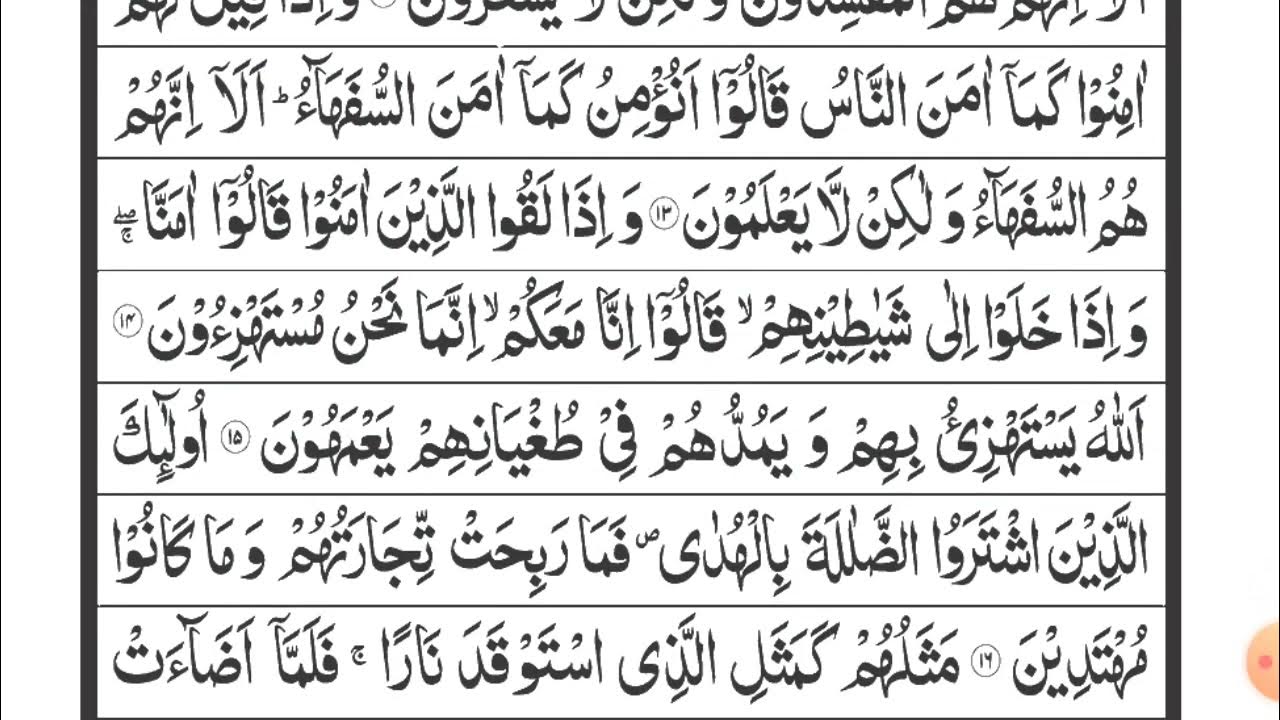 اَلَاۤ اِنَّهُمْ هُمُ الْمُفْسِدُوْنَ وَ لٰكِنْ لَّا يَشْعُرُوْنَ وَ اِذَا قِيْلَ لَهُمْ
اٰمِنُوْا كَمَاۤ اٰمَنَ النَّاسُ قَالُوْۤا اَنُؤْمِنُ كَمَاۤ اٰمَنَ السُّفَهَآءُ ؕ اَلَاۤ اِنَّهُمْ
هُمُ السُّفَهَآءُ وَ لٰكِنْ لَّا يَعْلَمُوْنَ ۝۱۳ وَ اِذَا لَقُوا الَّذِيْنَ اٰمَنُوْا قَالُوْۤا اٰمَنَّا ۖۚ
وَ اِذَا خَلَوْا اِلٰى شَيٰطِيْنِهِمْ ۙ قَالُوْۤا اِنَّا مَعَكُمْ ۙ اِنَّمَا نَحْنُ مُسْتَهْزِءُوْنَ ۝۱۴
اَللّٰهُ يَسْتَهْزِئُ بِهِمْ وَ يَمُدُّهُمْ فِيْ طُغْيَانِهِمْ يَعْمَهُوْنَ ۝۱۵ اُولٰٓئِكَ
الَّذِيْنَ اشْتَرَوُا الضَّلٰلَةَ بِالْهُدٰى ۪ فَمَا رَبِحَتْ تِّجَارَتُهُمْ وَ مَا كَانُوْا
مُهْتَدِيْنَ ۝۱۶ مَثَلُهُمْ كَمَثَلِ الَّذِى اسْتَوْقَدَ نَارًا ۚ فَلَمَّاۤ اَضَآءَتْ